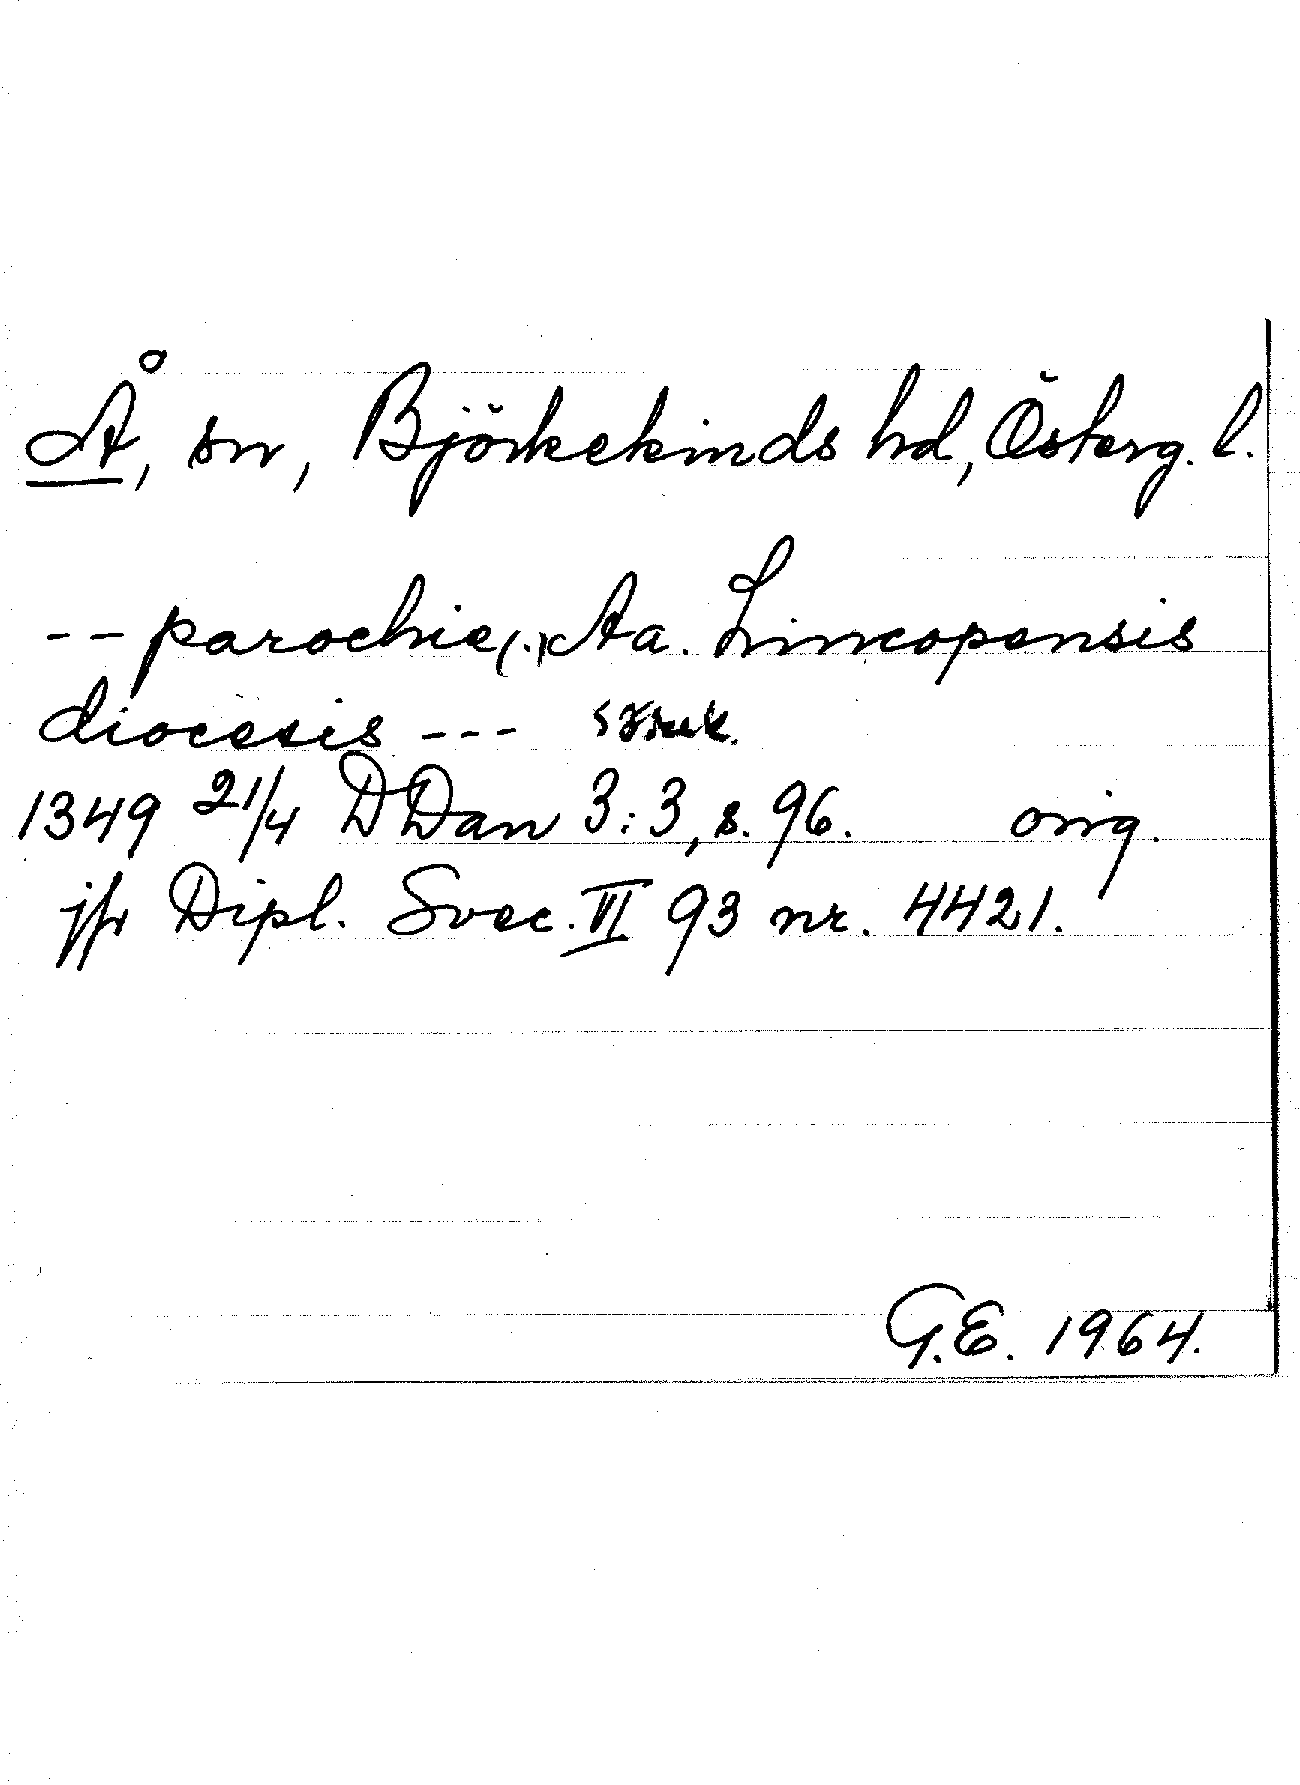 Å, sn, Björkekinds hd, Österg. l.
-- parochie (.) Aa. Lincopensis
diocesis ---
1349 21/4 DDan 3:3, s. 96. orig.
jfr Dipl. Svec. VI 93 nr. 4421.
G.E. 1964.